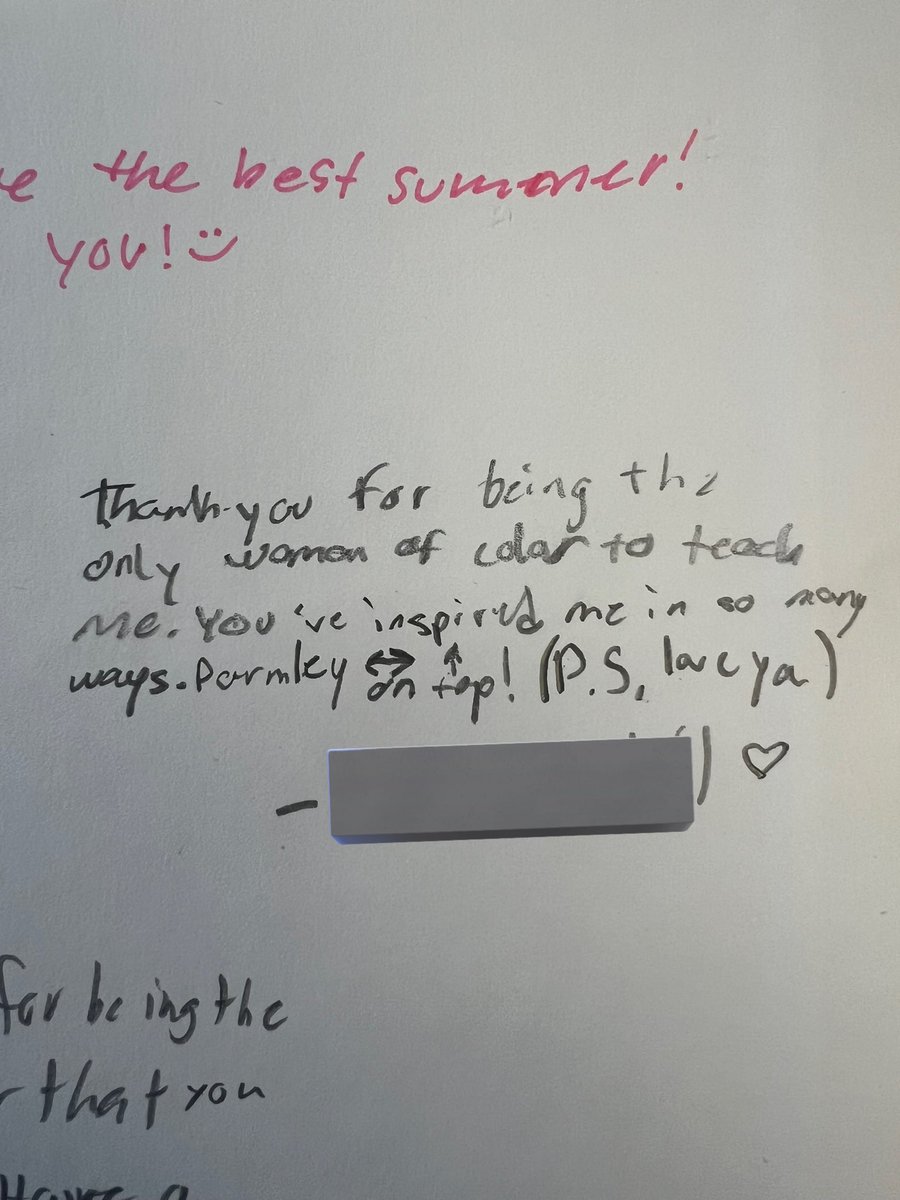 the best summer!
you!
Thank-you for being the
only women of color to teach
me. You've inspired me in so many
ways. Parmley on top! (P.S, love ya)
for being the
that you
Have a